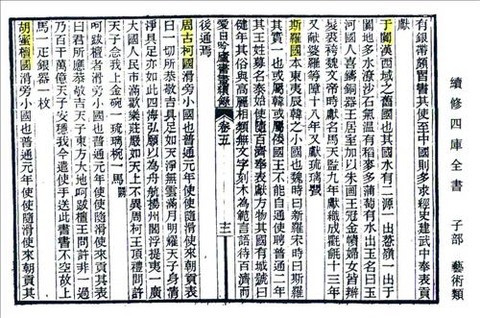 續修四庫全書 子部 藝術類
有銀帶頗習書其使至中國則多求經史建武中奉表貢
獻
于闐漢西域之舊國也其國水有二源一出葱嶺一出于
闐地多水潦沙石氣溫有稻麥多蒲萄有水出玉名曰玉
河國人喜鑄銅器王居室加以朱画王冠金幘婦女皆辮
髮裘袴魏文帝時獻名馬天監九年獻織成氍毹十三年
又獻婆羅等障十八年又獻琉璃甖
斯羅國本東夷辰韓之小國也魏時曰新羅宋時曰斯羅
其實一也或屬韓或屬倭國王不能自通使聘普通二年
其王姓募名泰始使隨百濟奉表獻方物其國有城號曰
健年其俗與高麗相類無文字刻木為範言語待百濟而
愛日吟廬書畫續錄 卷五 十二
後通焉
周古柯國滑旁小國也普通元年使使隨滑使來貢其表
曰一切所恭敬吉具足如天淨無雲滿月明耀天子身清
淨具足亦如此四海弘願以為舟航揚州閻浮提第一廣
大國人民布滿歡樂莊嚴如天上不異周柯王頂禮問訊
天子念我上金碗一琉璃椀一馬一
呵跋檀國滑旁小國也普通元年使使隨滑使來貢其表
曰君所應恭敬吉天子東方大地呵跋檀王問訊非一過
乃百千萬億天子安隱我今遣使手送此書書不空故上
馬一疋銀器一枚
胡蜜檀國滑旁小國也普通元年使使隨滑使來朝貢其